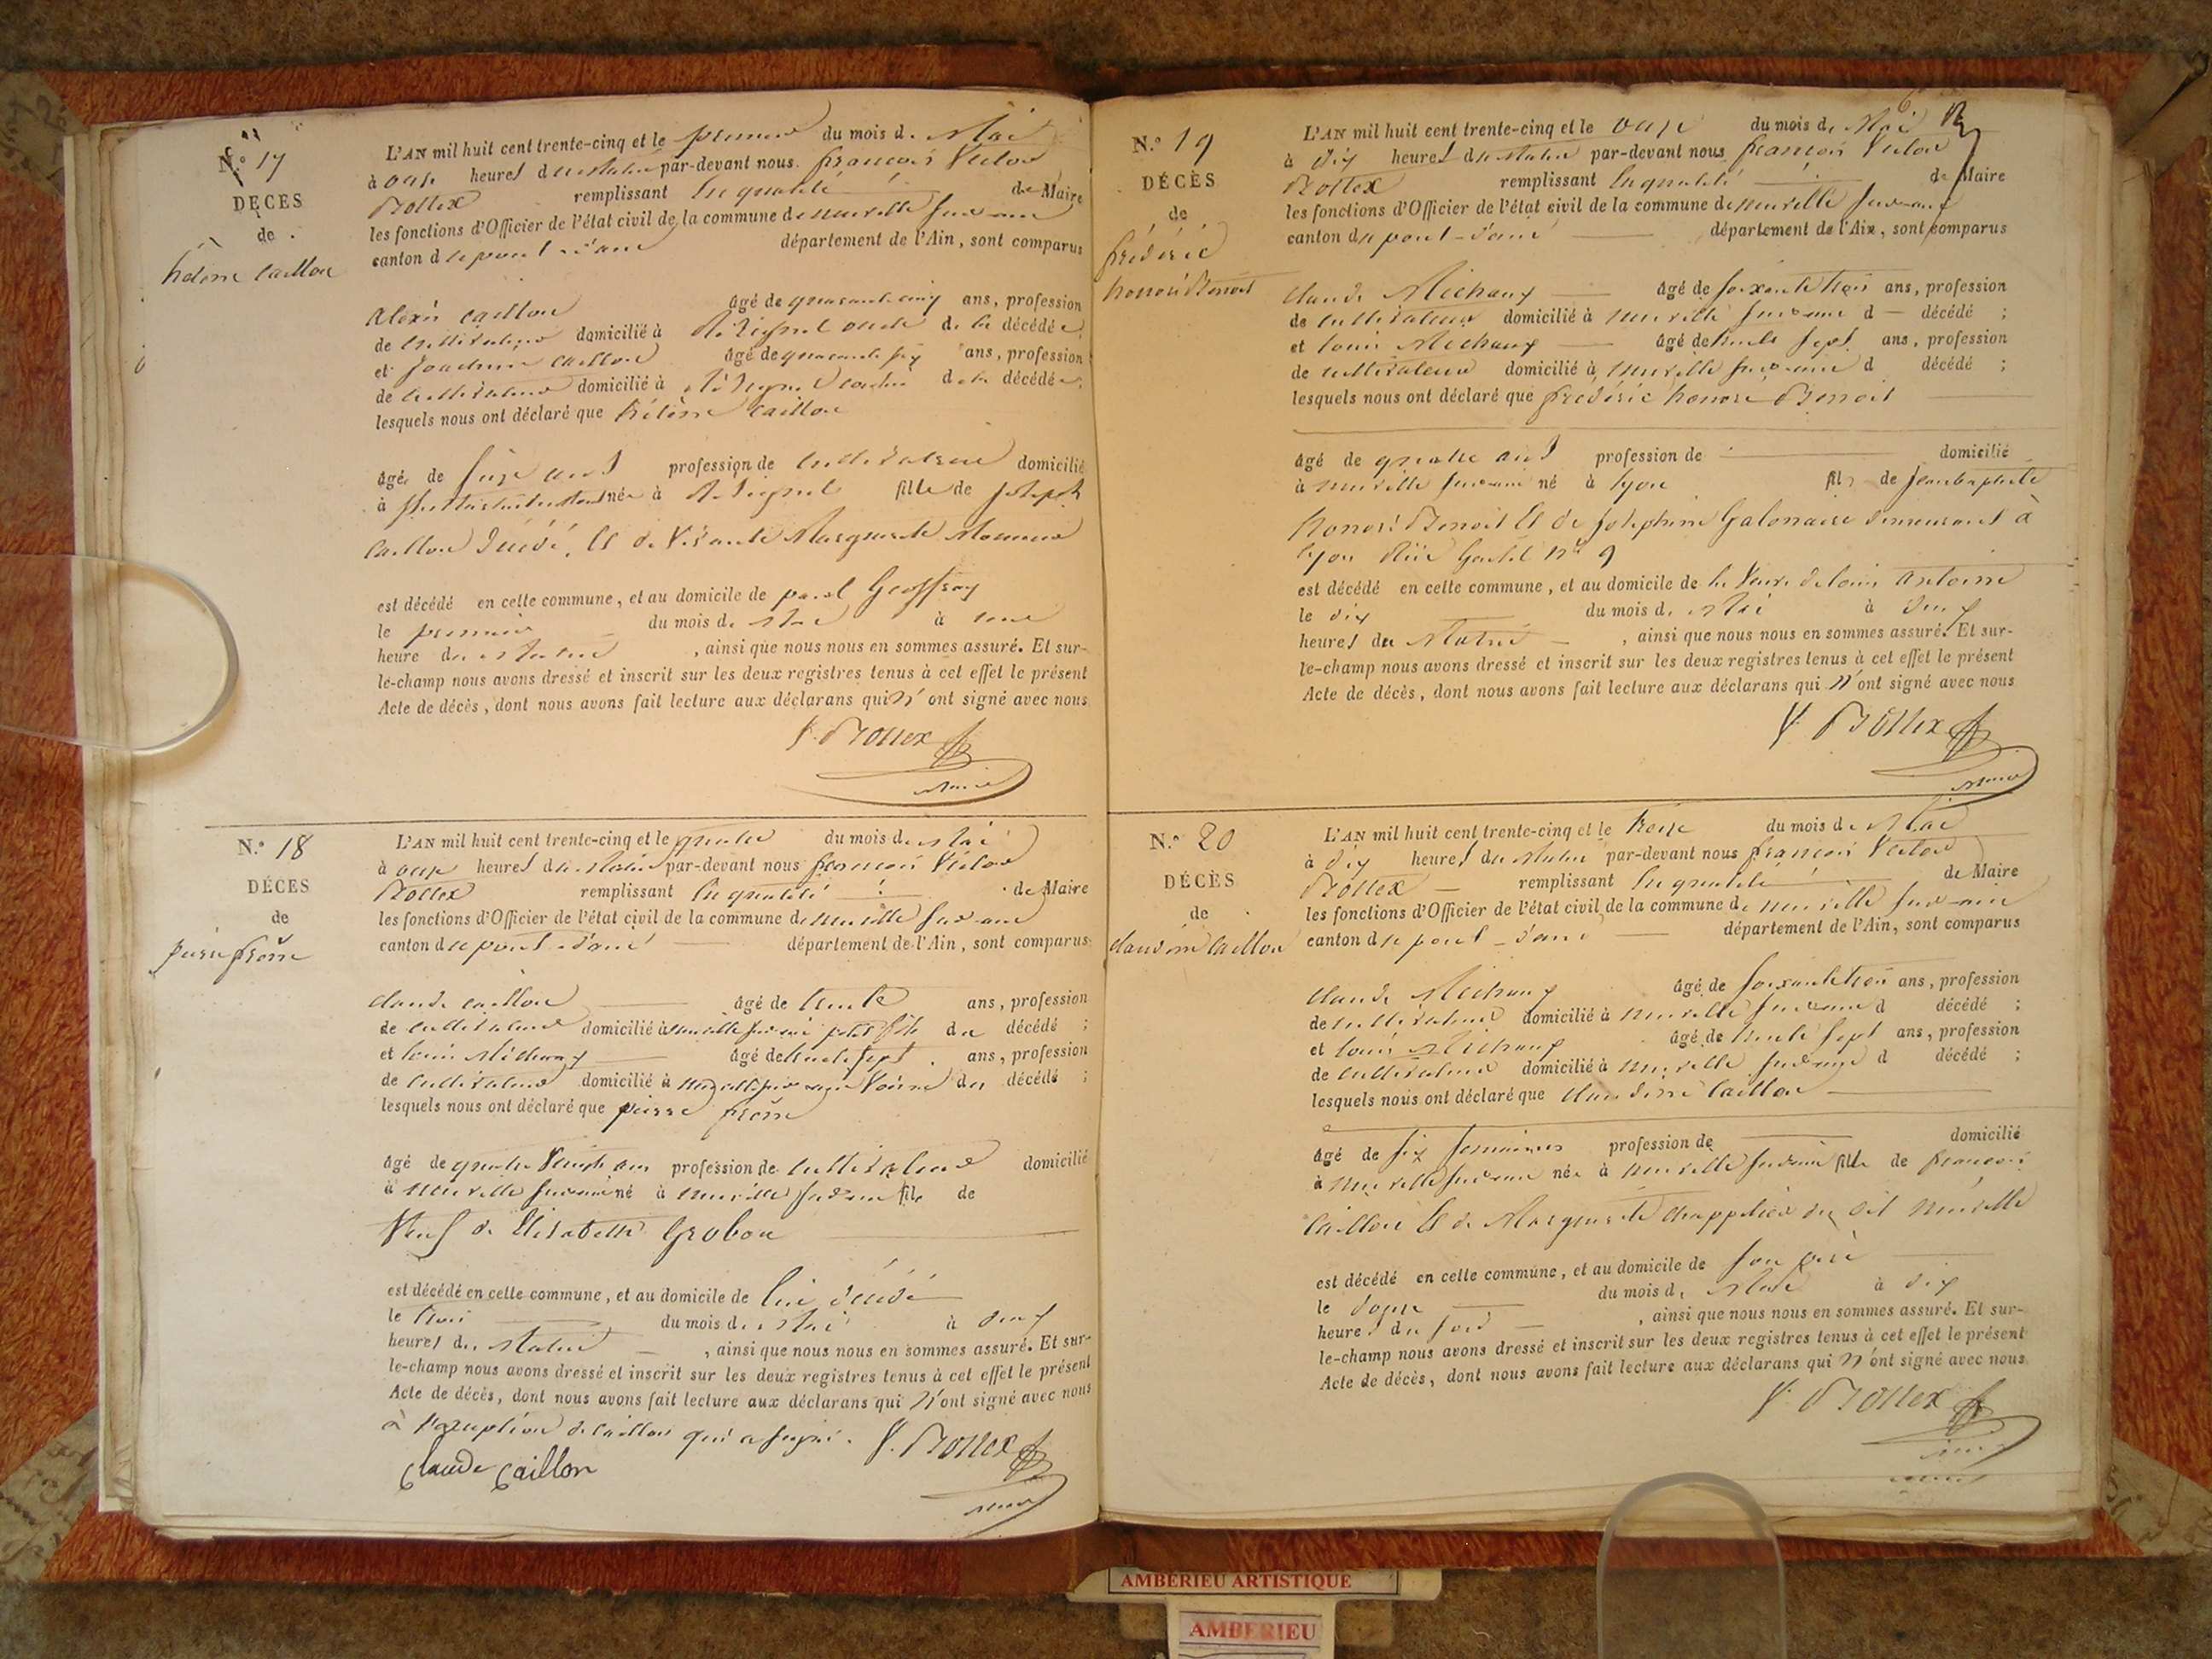 N.º 17
DÉCÈS
de
hélène Caillon
L'AN mil huit cent trente-cinq et le premier du mois de Mai
à onze heures du Matin par-devant nous françois Victor
Bottex remplissant la qualité de Maire
les fonctions d'Officier de l'état civil de la commune de neuville sur ain
canton de pont-d'ain département de l'Ain, sont comparus
Alexis Caillon âgé de quarante cinq ans, profession
de Cultivateur domicilié à oncle de la décédée;
et Joachim Caillon âgé de quarante six ans, profession
de Cultivateur domicilié à de la décédée;
lesquels nous ont déclaré que hélène Caillon
âgée de seize ans profession de cultivatrice domicilié
à née à fille de Joseph
Caillon décédé, Et de Vivante Marguerite
est décédé en cette commune, et au domicile de paul Geoffray
le premier du mois de Mai à une
heure du Matin, ainsi que nous nous en sommes assuré. Et sur-
le-champ nous avons dressé et inscrit sur les deux registres tenus à cet effet le présent
Acte de décès, dont nous avons fait lecture aux déclarans qui n'ont signé avec nous
V. Bottex
Maire
N.º 18
DÉCÈS
de
pierre
L'AN mil huit cent trente-cinq et le quatre du mois de Mai
à onze heures du Matin par-devant nous françois Victor
Bottex remplissant la qualité de Maire
les fonctions d'Officier de l'état civil de la commune de neuville sur ain
canton de pont-d'ain département de l'Ain, sont comparus
Claude Caillon âgé de trente ans, profession
de cultivateur domicilié à neuville sur ain petit fils du décédé;
et louis Michaux âgé de trente sept ans, profession
de Cultivateur domicilié à neuville sur ain Voisin du décédé;
lesquels nous ont déclaré que pierre
âgé de quatre Vingts ans profession de cultivateur domicilié
à neuville sur ain né à neuville sur ain fils de
Veuf de Elisabeth Grobon
est décédé en cette commune, et au domicile de lui décédé
le trois du mois de Mai à deux
heures du Matin, ainsi que nous nous en sommes assuré. Et sur-
le-champ nous avons dressé et inscrit sur les deux registres tenus à cet effet le présent
Acte de décès, dont nous avons fait lecture aux déclarans qui n'ont signé avec nous
à l'exception de Caillon qui a signé. V. Bottex
Claude Caillon
Maire
N.º 19
DÉCÈS
de
frédéric
honoré Benoit
L'AN mil huit cent trente-cinq et le onze du mois de Mai
à dix heures du Matin par-devant nous françois Victor
Bottex remplissant la qualité de Maire
les fonctions d'Officier de l'état civil de la commune de neuville sur ain
canton de pont-d'ain département de l'Ain, sont comparus
Claude Michaux âgé de soixante trois ans, profession
de cultivateur domicilié à neuville sur ain d décédé;
et louis Michaux âgé de trente sept ans, profession
de cultivateur domicilié à neuville sur ain d décédé;
lesquels nous ont déclaré que frédéric honoré Benoit
âgé de quatre ans profession de domicilié
à neuville sur ain né à lyon fils de Jean baptiste
honoré Benoit Et de Joséphine demeurant à
lyon Rüe n° 9
est décédé en cette commune, et au domicile de la Veuve de louis antoine
le dix du mois de Mai à deux
heures du Matin, ainsi que nous nous en sommes assuré. Et sur-
le-champ nous avons dressé et inscrit sur les deux registres tenus à cet effet le présent
Acte de décès, dont nous avons fait lecture aux déclarans qui n'ont signé avec nous
V. Bottex
Maire
N.º 20
DÉCÈS
de
claudine Caillon
L'AN mil huit cent trente-cinq et le treize du mois de Mai
à dix heures du Matin par-devant nous françois Victor
Bottex remplissant la qualité de Maire
les fonctions d'Officier de l'état civil de la commune de neuville sur ain
canton de pont-d'ain département de l'Ain, sont comparus
Claude Michaux âgé de soixante trois ans, profession
de cultivateur domicilié à neuville sur ain d décédé;
et louis Michaux âgé de trente sept ans, profession
de cultivateur domicilié à neuville sur ain d décédé;
lesquels nous ont déclaré que claudine Caillon
âgé de six semaines profession de domicilié
à neuville sur ain née à neuville sur ain fille de françois
Caillon Et de Marguerite du dit neuville
est décédé en cette commune, et au domicile de son père
le douze du mois de Mai à dix
heures du soir, ainsi que nous nous en sommes assuré. Et sur-
le-champ nous avons dressé et inscrit sur les deux registres tenus à cet effet le présent
Acte de décès, dont nous avons fait lecture aux déclarans qui n'ont signé avec nous
V. Bottex
AMBERIEU ARTISTIQUE
AMBERIEU